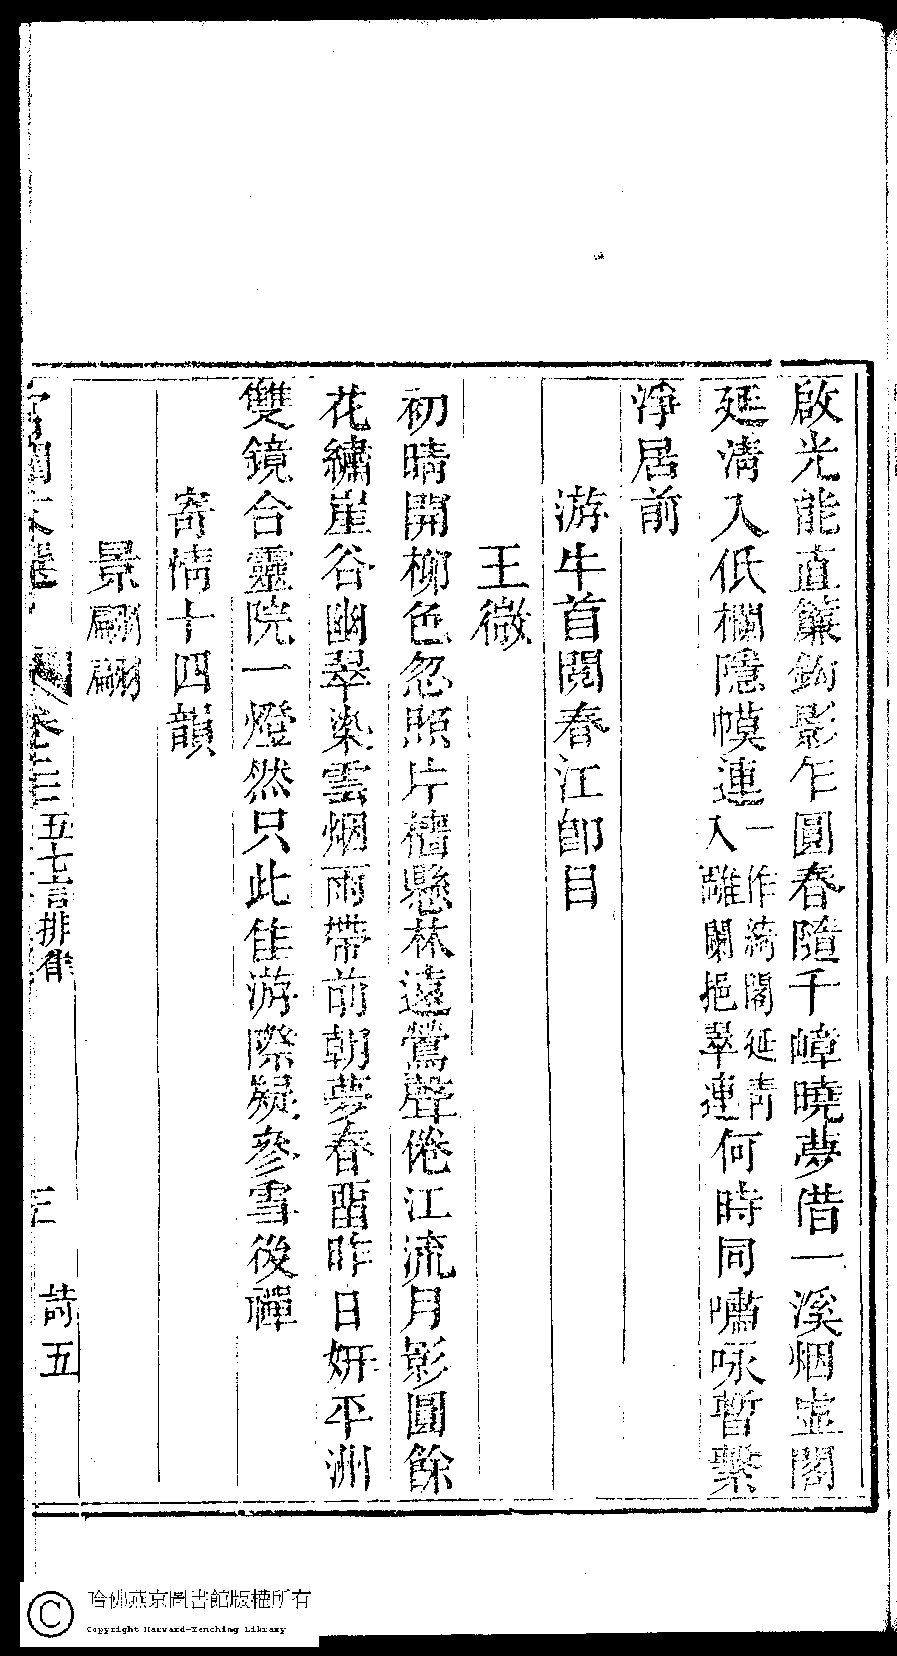 啟光能直簾鉤影乍圓春隨千嶂曉夢借一溪烟虛閣
延淸入低欄隱幙連一作綺閣延靑入雕闌挹翠連何時同嘯咏暫繫
淨居前
游牛首閱春江卽目
王微
初晴開柳色忽照片樯懸林遠鶯聲倦江流月影圓餘
花繡崖谷幽翠染雲烟雨帶前朝夢春畱昨日妍平洲
雙鏡合靈院一燈然只此佳游際疑參雪後禪
寄情十四韻
景翩翩
宮閨文選 卷二三 五七言排律 三 詩五
哈佛燕京圖書館版權所有
Copyright Harvard-Yenching Library